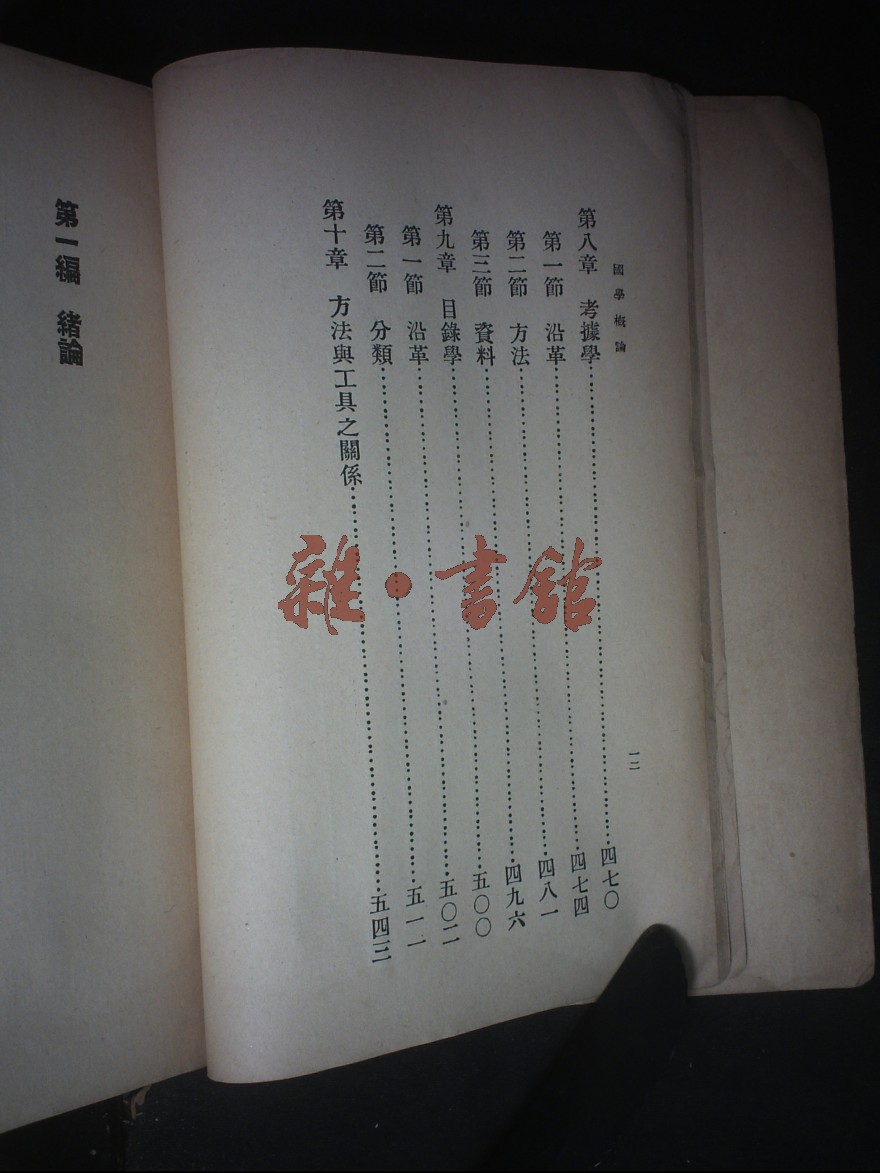 國學概論
一二
第八章 考據學……四七〇
第一節 沿革……四七四
第二節 方法……四八一
第三節 資料……四九六
第九章 目錄學……五〇〇
第一節 沿革……五〇二
第二節 分類……五一一
第十章 方法與工具之關係……五四三
第一編 緒論
雜·書館